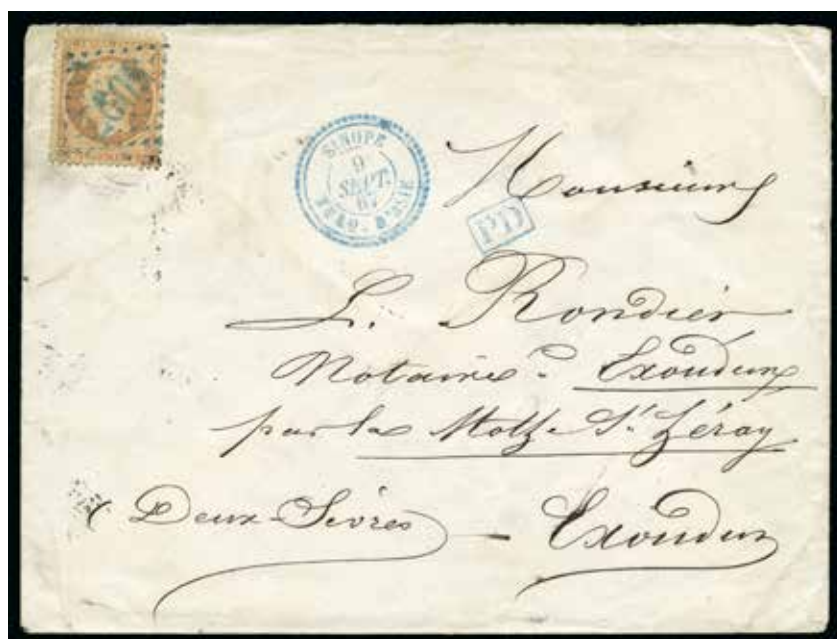 SINOPE
9
SEPT.
67
TURQ. D'ASIE
PD
Monsieur
L. Rondier
Notaire à Exoudun
par la Mothe St Héray
Deux-Sèvres - Exoudun